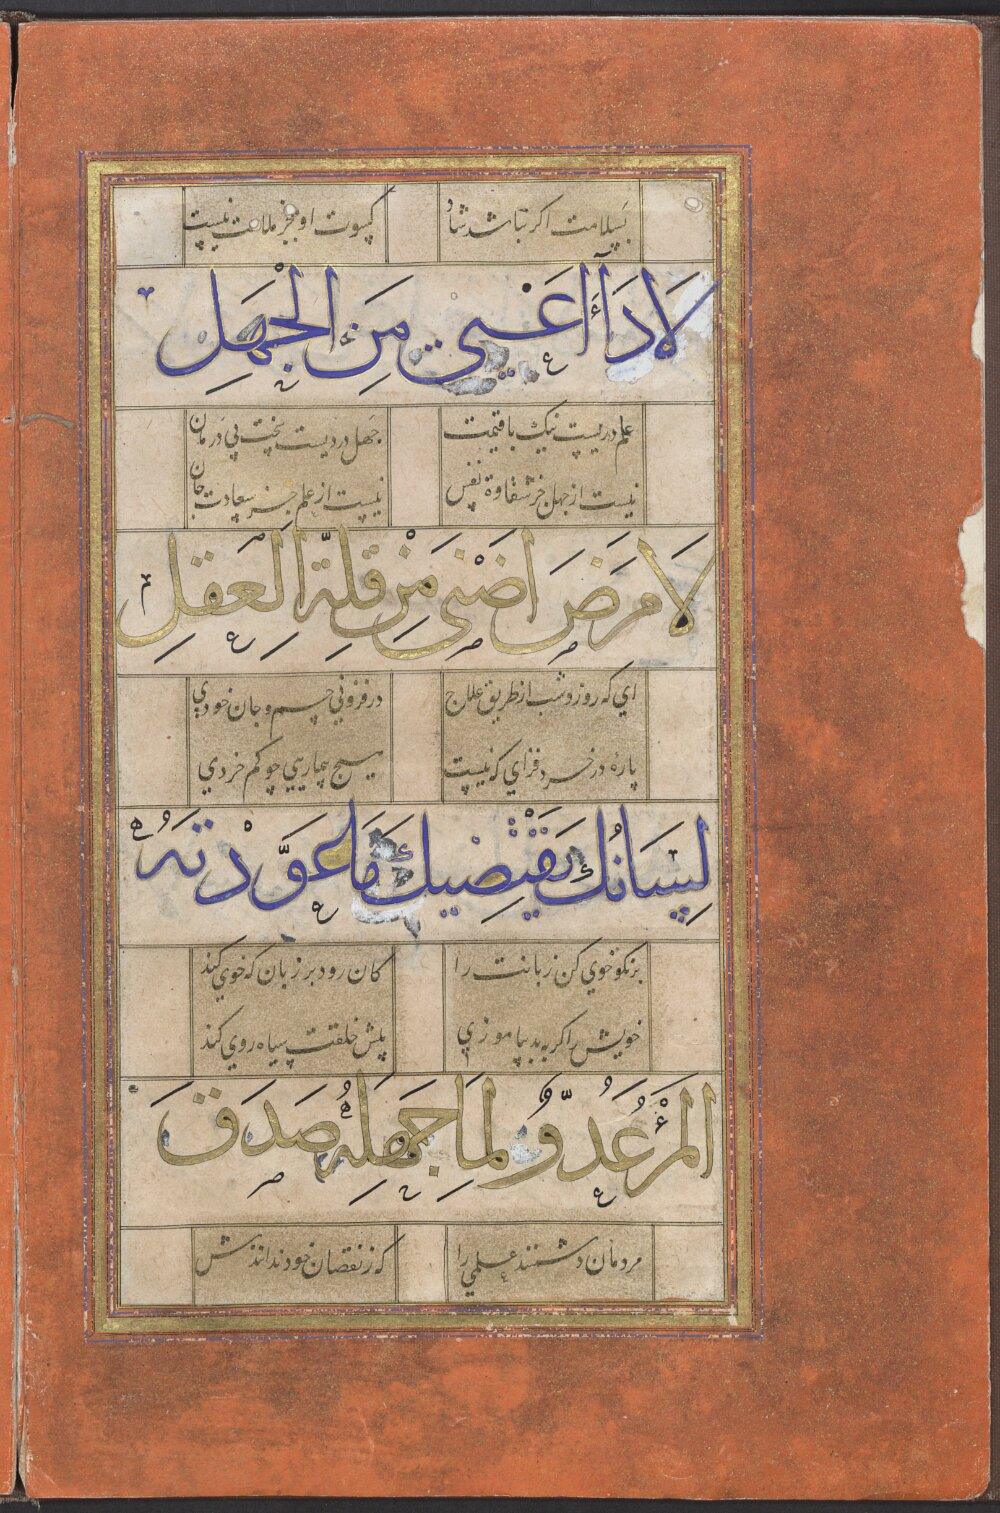 بسلامت اکر نباشد شاد کسوت او بجز ملامت نیست
لَا دَاءَ اَعْیٰی مِنَ الْجَهْلِ
علم دریست نیک با قیمت جهل دردیست سخت بی درمان
نیست از جهل جز شقاوة نفس نیست از علم جز سعادت جان
لَا مَرَضَ اَضْنٰی مِنْ قِلَّةِ الْعَقْلِ
ای که روز و شب از طریق علاج در فزونی جسم و جان خودی
پارهٔ در خرد فزای که نیست هیچ بیماریی چو کم خردی
لِسَانُكَ یَقْتَضِیكَ مَا عَوَّدْتَهُ
بر نکو خوی کن زبانت را کان رود بر زبان که خوی کند
خویش را کر به بد بیاموزی پیش خلقت سیاه روی کند
اَلْمَرْءُ عَدُوٌّ لِمَا جَهِلَهُ صَدَقَ
مردمان دشمنند علمی را که ز نقصان خود ندانندش